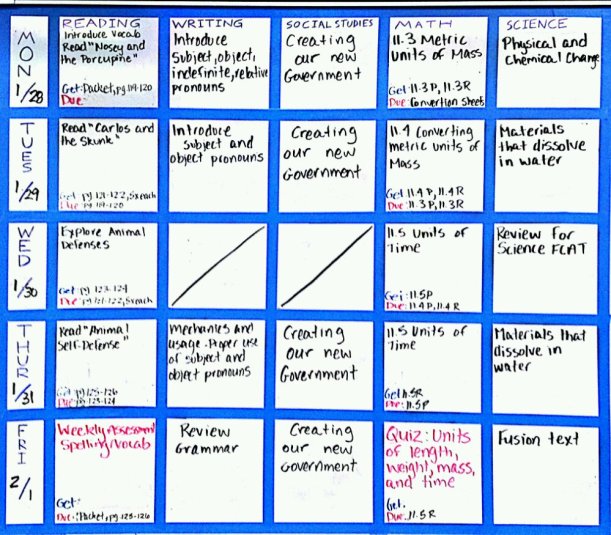 READING
WRITING
SOCIAL STUDIES
MATH
SCIENCE
MON
1/28
Introduce Vocab
Read "Nosey and
the Porcupine"
Get: Packet, pg 119-120
Due:
Introduce
subject, object,
indefinite, relative
pronouns
Creating
our new
Government
11.3 Metric
Units of Mass
Get: 11.3P, 11.3R
Due: Convertion Sheets
Physical and
Chemical Change
TUES
1/29
Read "Carlos and
the Skunk"
Get pg 121-122, 5xeach
Due: pg 119-120
Introduce
subject and
object pronouns
Creating
our new
Government
11.4 Converting
metric units of
Mass
Get 11.4P, 11.4R
Due: 11.3P, 11.3R
Materials
that dissolve
in water
WED
1/30
Explore Animal
Defenses
Get: pg 123-124
Due: pg 121-122, 5xeach
11.5 Units of
Time
Get: 11.5P
Due: 11.4P, 11.4R
Review for
Science FCAT
THUR
1/31
Read "Animal
Self-Defense"
Get pg 125-126
Due pg 123-124
Mechanics and
usage. Proper use
of subject and
object pronouns
Creating
our new
Government
11.5 Units of
Time
Get 11.5R
Due: 11.5P
Materials that
dissolve in
water
FRI
2/1
Weekly Assessment
Spelling/Vocab
Get:
Due: Packet, pg 125-126
Review
Grammar
Creating
our new
Government
Quiz: Units
of length,
weight, mass,
and time
Get.
Due: 11.5R
Fusion text